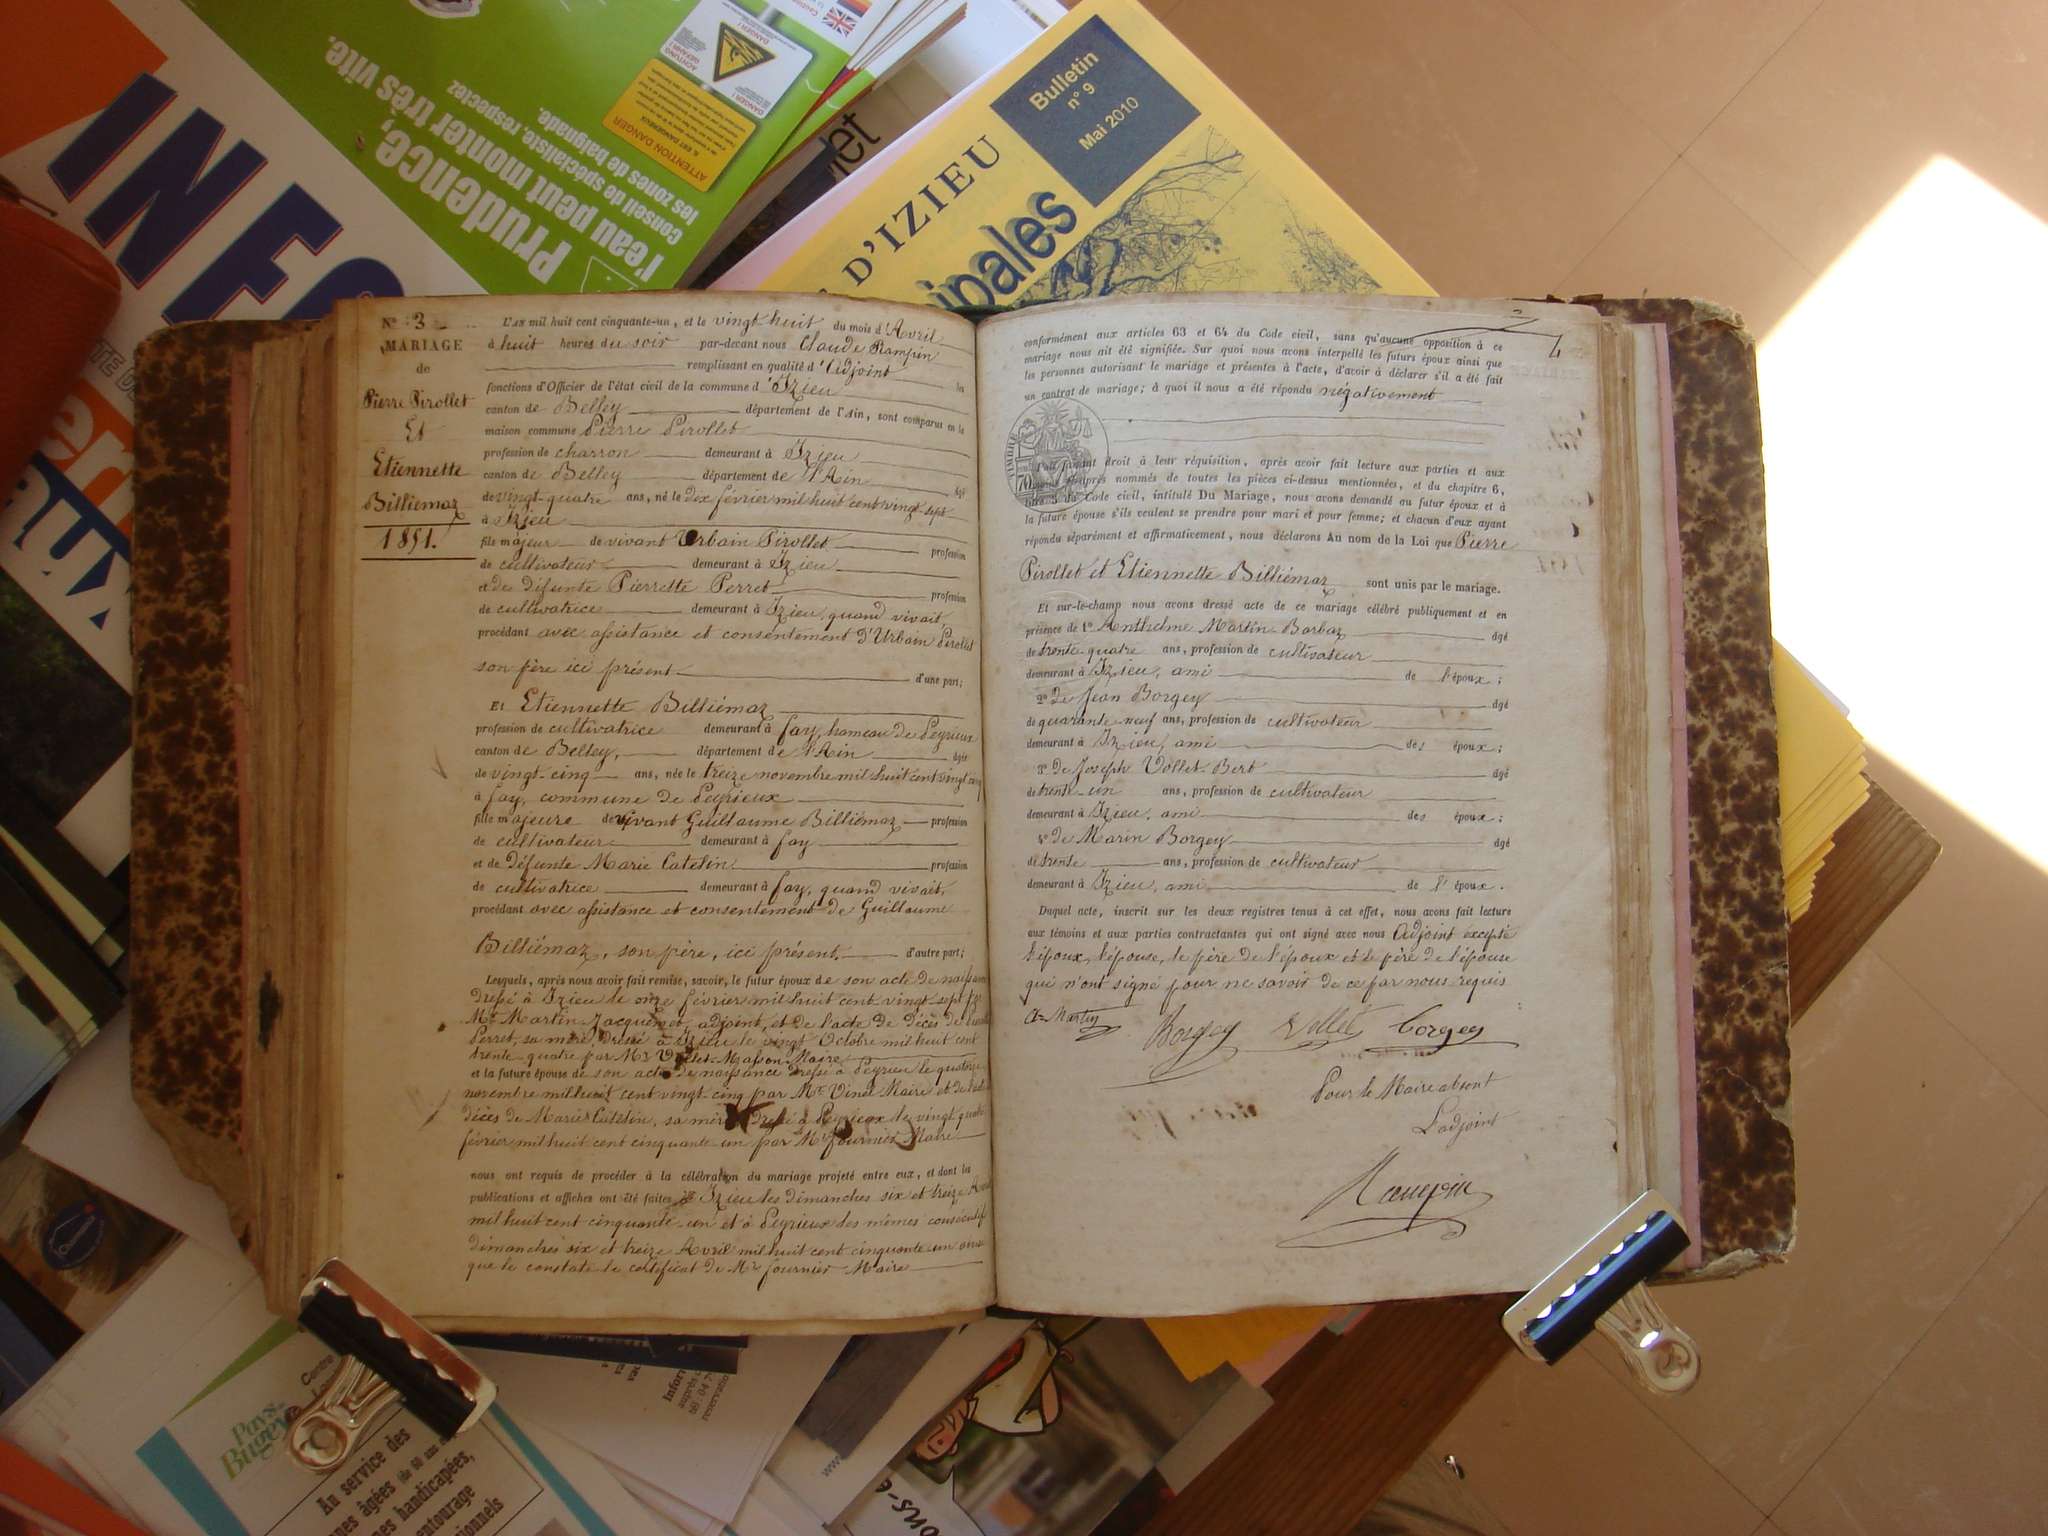 INFO
Prudence,
l'eau peut monter très vite.
Conseil de spécialiste, respectez
les zones de baignade.
ATTENTION DANGER
DANGER !
ACHTUNG
GEFAHR !
Bulletin
n° 9
Mai 2010
D'IZIEU
ipales
N° 3
MARIAGE
de
Pierre Pirollet
Et
Etiennette
Billiémaz
1851.
L'AN mil huit cent cinquante-un, et le vingt huit du mois d'Avril
à huit heures du soir par-devant nous Claude Rampin
remplissant en qualité d'Adjoint les
fonctions d'Officier de l'état civil de la commune d'Izieu
canton de Belley département de l'Ain, sont comparus en la
maison commune Pierre Pirollet
profession de charron demeurant à Izieu
canton de Belley département de l'Ain âgé
de vingt-quatre ans, né le dix février mil huit cent vingt sept
à Izieu
fils majeur de vivant Urbain Pirollet profession
de cultivateur demeurant à Izieu
et de défunte Pierrette Perret profession
de cultivatrice demeurant à Izieu, quand vivait,
procédant avec assistance et consentement d'Urbain Pirollet
son père ici présent d'une part;
Et Etiennette Billiémaz
profession de cultivatrice demeurant à fay, hameau de Peyrieux
canton de Belley, département de l'Ain âgée
de vingt-cinq ans, née le treize novembre mil huit cent vingt cinq
à fay, commune de Peyrieux
fille majeure de vivant Guillaume Billiémaz profession
de cultivateur demeurant à fay
et de défunte Marie Catelin profession
de cultivatrice demeurant à fay, quand vivait,
procédant avec assistance et consentement de Guillaume
Billiémaz, son père, ici présent. d'autre part;
Lesquels, après nous avoir fait remise, savoir, le futur époux de son acte de naissance
dressé à Izieu le onze février mil huit cent vingt-sept par
Mr Martin-Jacquemet, adjoint, et de l'acte de décès de Pierrette
Perret, sa mère, dressé à Izieu le vingt Octobre mil huit cent
trente-quatre par Mr Vollet-Masson Maire
et la future épouse de son acte de naissance dressé à Peyrieu le quatorze
novembre mil huit cent vingt-cinq par Mr Vinet Maire et de l'acte
décès de Marie Catelin, sa mère dressé à Peyrieux le vingt quatre
février mil huit cent cinquante un par Mr fournier Maire
nous ont requis de procéder à la célébration du mariage projeté entre eux, et dont les
publications et affiches ont été faites à Izieu les dimanches six et treize Avril
mil huit cent cinquante-un et à Peyrieux les mêmes consécutifs
dimanches six et treize Avril mil huit cent cinquante un ainsi
que le constate le certificat de Mr fournier Maire
conformément aux articles 63 et 64 du Code civil, sans qu'aucune opposition à ce
mariage nous ait été signifiée. Sur quoi nous avons interpellé les futurs époux ainsi que
les personnes autorisant le mariage et présentes à l'acte, d'avoir à déclarer s'il a été fait
un contrat de mariage; à quoi il nous a été répondu négativement
droit à leur réquisition, après avoir fait lecture aux parties et aux
ci-après nommés de toutes les pièces ci-dessus mentionnées, et du chapitre 6,
du Code civil, intitulé Du Mariage, nous avons demandé au futur époux et à
la future épouse s'ils veulent se prendre pour mari et pour femme; et chacun d'eux ayant
répondu séparément et affirmativement, nous déclarons Au nom de la Loi que Pierre
Pirollet et Etiennette Billiémaz sont unis par le mariage.
Et sur-le-champ nous avons dressé acte de ce mariage célébré publiquement et en
présence de 1° Anthelme Martin-Barbaz âgé
de trente-quatre ans, profession de cultivateur
demeurant à Izieu, ami de l'époux;
2° de Jean Borgey âgé
de quarante-neuf ans, profession de cultivateur
demeurant à Izieu, ami des époux;
3° de Joseph Vollet-Bert âgé
de trente-un ans, profession de cultivateur
demeurant à Izieu, ami des époux;
4° de Marin Borgey âgé
de trente ans, profession de cultivateur
demeurant à Izieu, ami de l'époux.
Duquel acte, inscrit sur les deux registres tenus à cet effet, nous avons fait lecture
aux témoins et aux parties contractantes qui ont signé avec nous Adjoint excepté
l'époux, l'épouse, le père de l'époux et le père de l'épouse
qui n'ont signé pour ne savoir de ce par nous requis
Martin Borgey Vollet borgey
Pour le Maire absent
L'adjoint
Rampin
Pays
Bugey
Centre
Au service des
âgées (de 60 ans
handicapées,
entourage